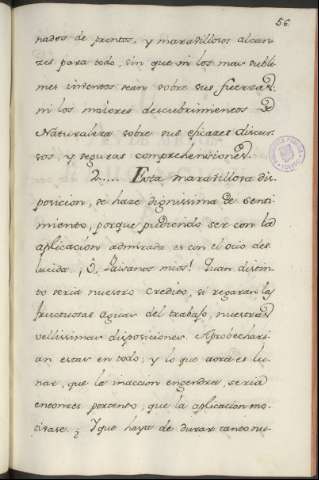 56
nados de prontos, y maravillosos alcan-
zes para todo, sin que ni los mas subli-
mes inventos sean sobre sus fuerzas,
ni los maiores descubrimientos de
Naturaleza sobre sus eficazes discur-
sos, y seguras comprehensiones.
2.... Esta maravillosa dis-
posicion, se haze dignissima de senti-
miento, porque pudiendo ser con la
aplicacion admirada es con el ocio des-
lucida ¡O, Paisanos mios! Quan distin-
to seria nuestro credito, si regaran las
fructuosas aguas del trabajo, nuestras
vellissimas disposiciones. Aprobechari-
an estas en todo; y lo que aora es lu-
nar, que la inaccion engendra, seria
entonces portento, que la aplicacion mo-
tivase. ¿Y que haya de durar tanto nu-